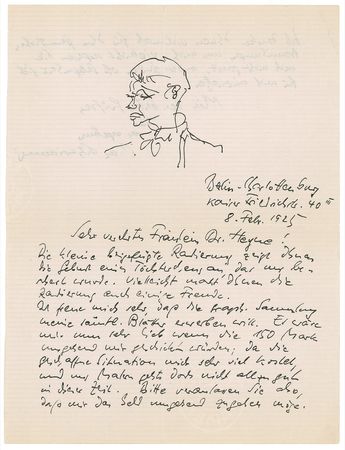 Berlin-Charlottenburg
Kaiser Friedrichstr. 40 III
8. Febr. 1925
Sehr verehrtes Fräulein Dr. Heyne!
Die kleine beigefügte Radierung zeigt Ihnen
die Geburt eines Töchterchens an, das mir be-
schert wurde. Vielleicht macht Ihnen die
Radierung auch einige Freude.
Ich freue mich sehr, daß die graph. Sammlung
meine Blätter erwerben will. Es wäre
mir nun sehr lieb wenn die 150 Mark
umgehend mir geschickt würden, da die
Situation mich sehr viel kostet
und uns Malern geht's doch nicht allzu gut
in dieser Zeit. Bitte veranlassen Sie also,
daß mir das Geld umgehend zugehen möge.